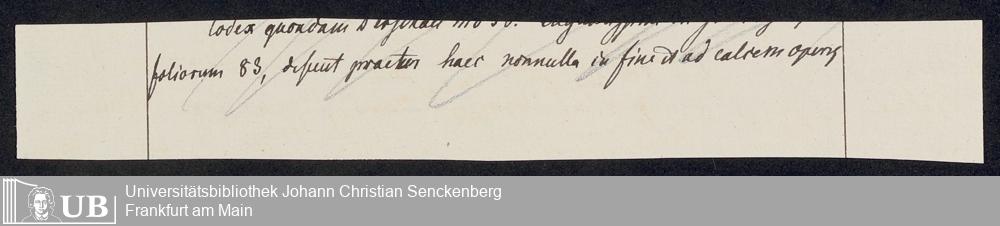 Codex quondam
foliorum 83, desunt praeter haec nonnulla in fine et ad calcem operis
Universitätsbibliothek Johann Christian Senckenberg
Frankfurt am Main
UB